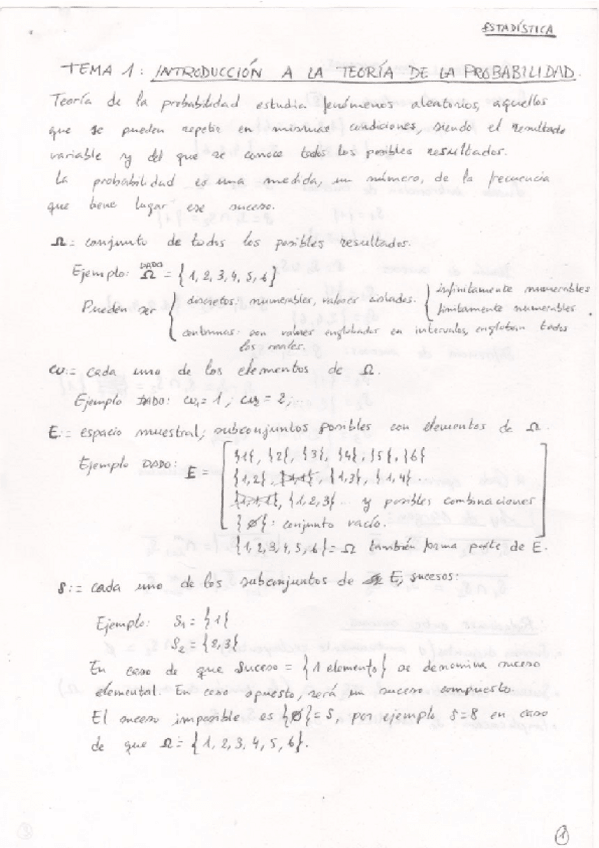 ESTADÍSTICA
TEMA 1: INTRODUCCIÓN A LA TEORÍA DE LA PROBABILIDAD.
Teoría de la probabilidad estudia fenómenos aleatorios, aquellos
que se pueden repetir en mismas condiciones, siendo el resultado
variable y del que se conoce todos los posibles resultados.
La probabilidad es una medida, un número, de la frecuencia
que tiene lugar ese suceso.
Ω := conjunto de todos los posibles resultados.
DADO
Ejemplo: Ω = {1, 2, 3, 4, 5, 6}
Pueden ser { discretos: numerables, valores aislados. { infinitamente numerables
finitamente numerables.
continuas: son valores englobados en intervalos, engloban todos
los reales.
ω := cada uno de los elementos de Ω.
Ejemplo DADO: ω₁ = 1 ; ω₂ = 2; ...
E := espacio muestral; subconjuntos posibles con elementos de Ω.
Ejemplo DADO: E = [ {1}, {2}, {3}, {4}, {5}, {6}
{1,2}, {1,3}, {1,4}...
{1,2,3}... y posibles combinaciones
{Ø}: conjunto vacío.
{1,2,3,4,5,6} = Ω también forma parte de E. ]
S := cada uno de los subconjuntos de E, sucesos:
Ejemplo: S₁ = {1}
S₂ = {2,3}
En caso de que suceso = {1 elemento} se denomina suceso
elemental. En caso opuesto, será un suceso compuesto.
El suceso imposible es {Ø} = S, por ejemplo S = 8 en caso
de que Ω = {1, 2, 3, 4, 5, 6}.
1